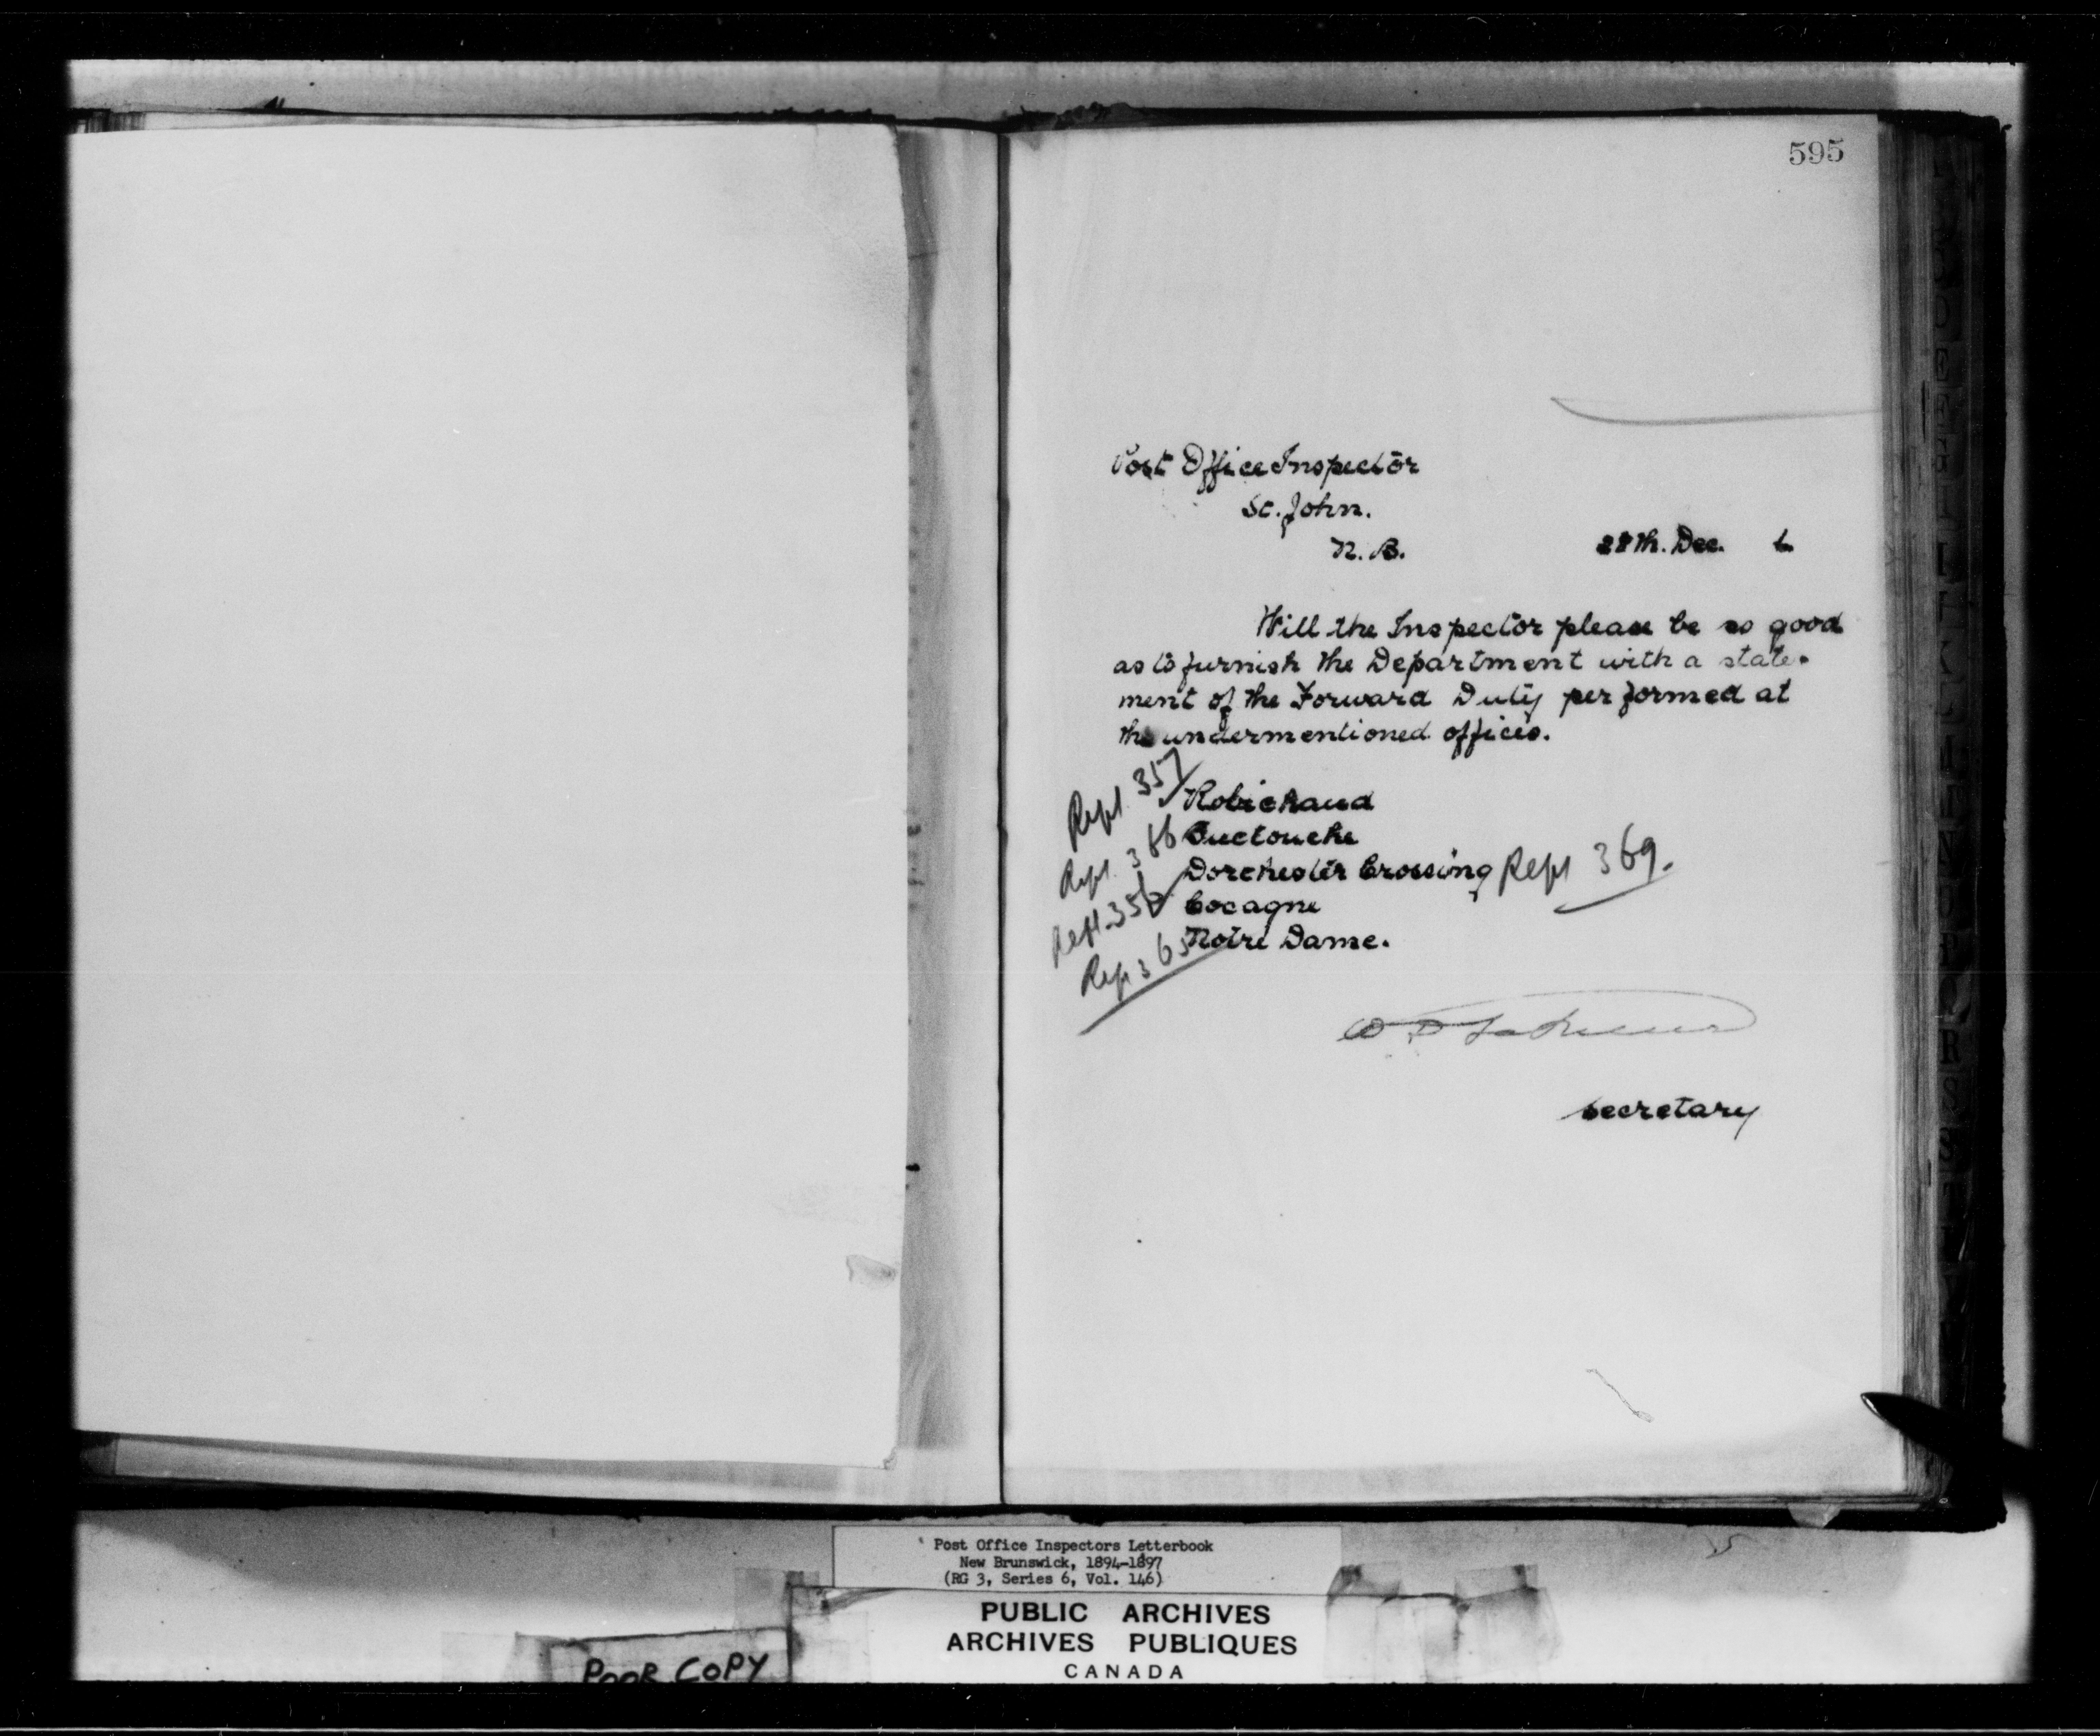 595
Post Office Inspector
St. John.
N. B.
28th. Dec. 6
Will the Inspector please be so good
as to furnish the Department with a state-
ment of the Forward Duty performed at
the undermentioned offices.
Rept 357 Robichaud
Rept. 366 Buctouche
Dorchester Crossing Rept 369.
Rept. 358 Cocagne
Rep 365 Notre Dame.
Secretary
Post Office Inspectors Letterbook
New Brunswick, 1894-1897
(RG 3, Series 6, Vol. 146)
PUBLIC ARCHIVES
ARCHIVES PUBLIQUES
CANADA
POOR COPY